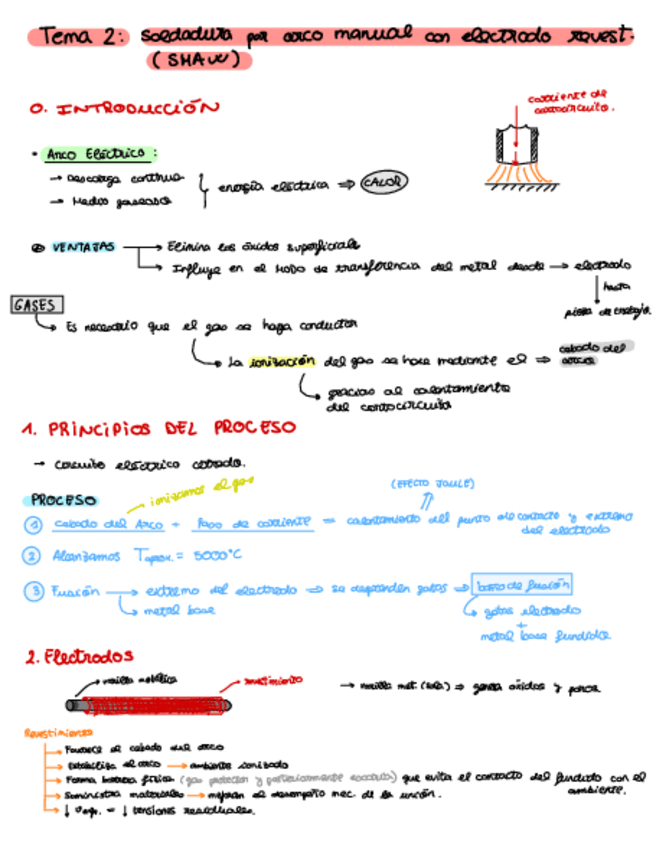 Tema 2: Soldadura por arco manual con electrodo revest.
(SHAW)
0. INTRODUCCIÓN
corriente de
cortocircuito.
• Arco Eléctrico:
→ Descarga continua
→ Medio gaseoso
energía eléctrica ⇒ CALOR
VENTAJAS → Elimina los óxidos superficiales
→ Influye en el modo de transferencia del metal desde → electrodo
↓ hasta
pieza de trabajo.
GASES
→ Es necesario que el gas se haga conductor
→ La ionización del gas se hace mediante el ⇒ cebado del
arco
→ gracias al calentamiento
del cortocircuito
1. PRINCIPIOS DEL PROCESO
→ Circuito eléctrico cerrado.
ionizamos el gas
(EFECTO JOULE)
PROCESO
① cebado del Arco + Paso de corriente = calentamiento del punto de contacto y extremo
del electrodo
② Alcanzamos Taprox. = 5000°C
③ Fusión → extremo del electrodo ⇒ se desprenden gotas ⇒ baño de fusión
→ metal base
→ gotas electrodo
+
metal base fundido
2. Electrodos
→ varilla metálica
→ revestimiento
→ varilla met. (sola) ⇒ genera óxidos y poros
Revestimiento
→ Favorece el cebado del arco
→ Estabiliza el arco → ambiente ionizado
→ Forma barrera física (gas protector y posteriormente escoria) que evita el contacto del fundido con el
ambiente.
→ Suministra materiales → mejoran el desempeño mec. de la unión.
→ ↓ = ↓ tensiones residuales.